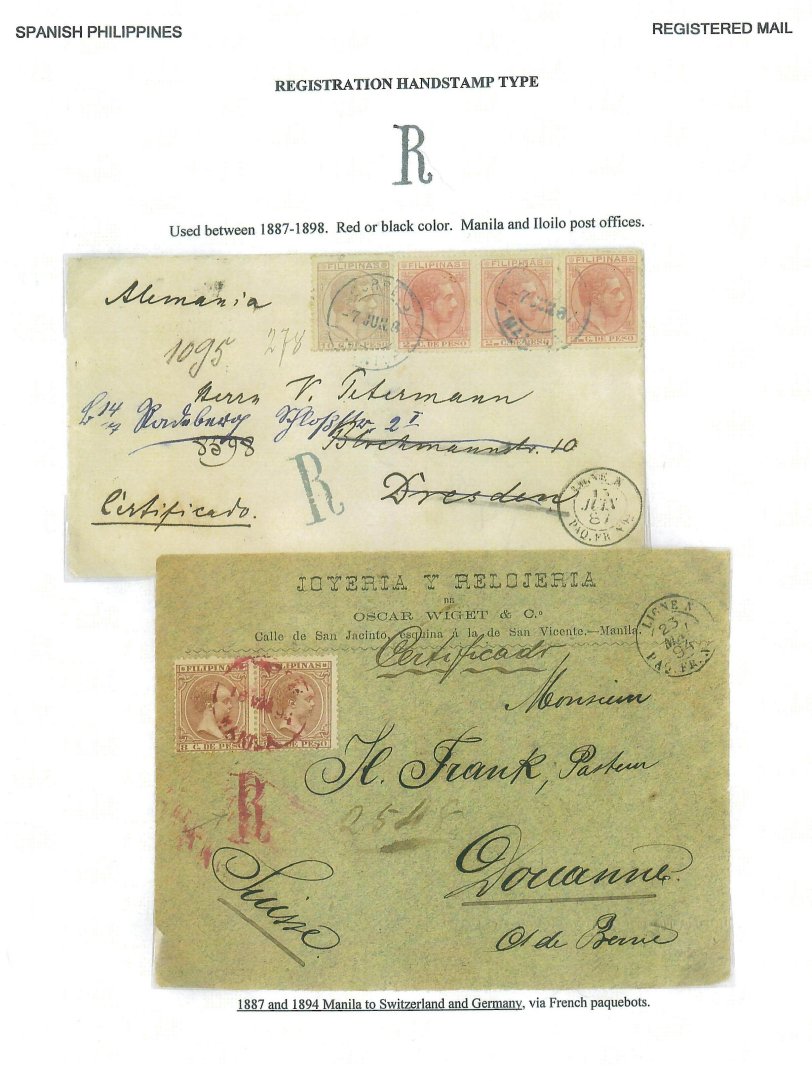 SPANISH PHILIPPINES
REGISTERED MAIL
REGISTRATION HANDSTAMP TYPE
R
Used between 1887-1898. Red or black color. Manila and Iloilo post offices.
FILIPINAS FILIPINAS FILIPINAS FILIPINAS
-7 JUN 8
C. DE PESO C. DE PESO C. DE PESO C. DE PESO
Alemania
1095 278
Herrn V. Petermann
Radeberg Schloßstr. 2 I
8598 Blochmannstr. 10
R
Dresden
Certificado.
LIGNE N
13
JUIN
87
PAQ. FR. N
JOYERIA Y RELOJERIA
DE
OSCAR WIGET & C.º
Calle de San Jacinto, esquina á la de San Vicente.—Manila.
LIGNE N
23
94
PAQ. FR. N
Certificado
FILIPINAS FILIPINAS
MANILA
8 C. DE PESO DE PESO
Monsieur
H. Frank, Pasteur
R
2548
Douanne.
Suisse
Ct de Berne
1887 and 1894 Manila to Switzerland and Germany, via French paquebots.